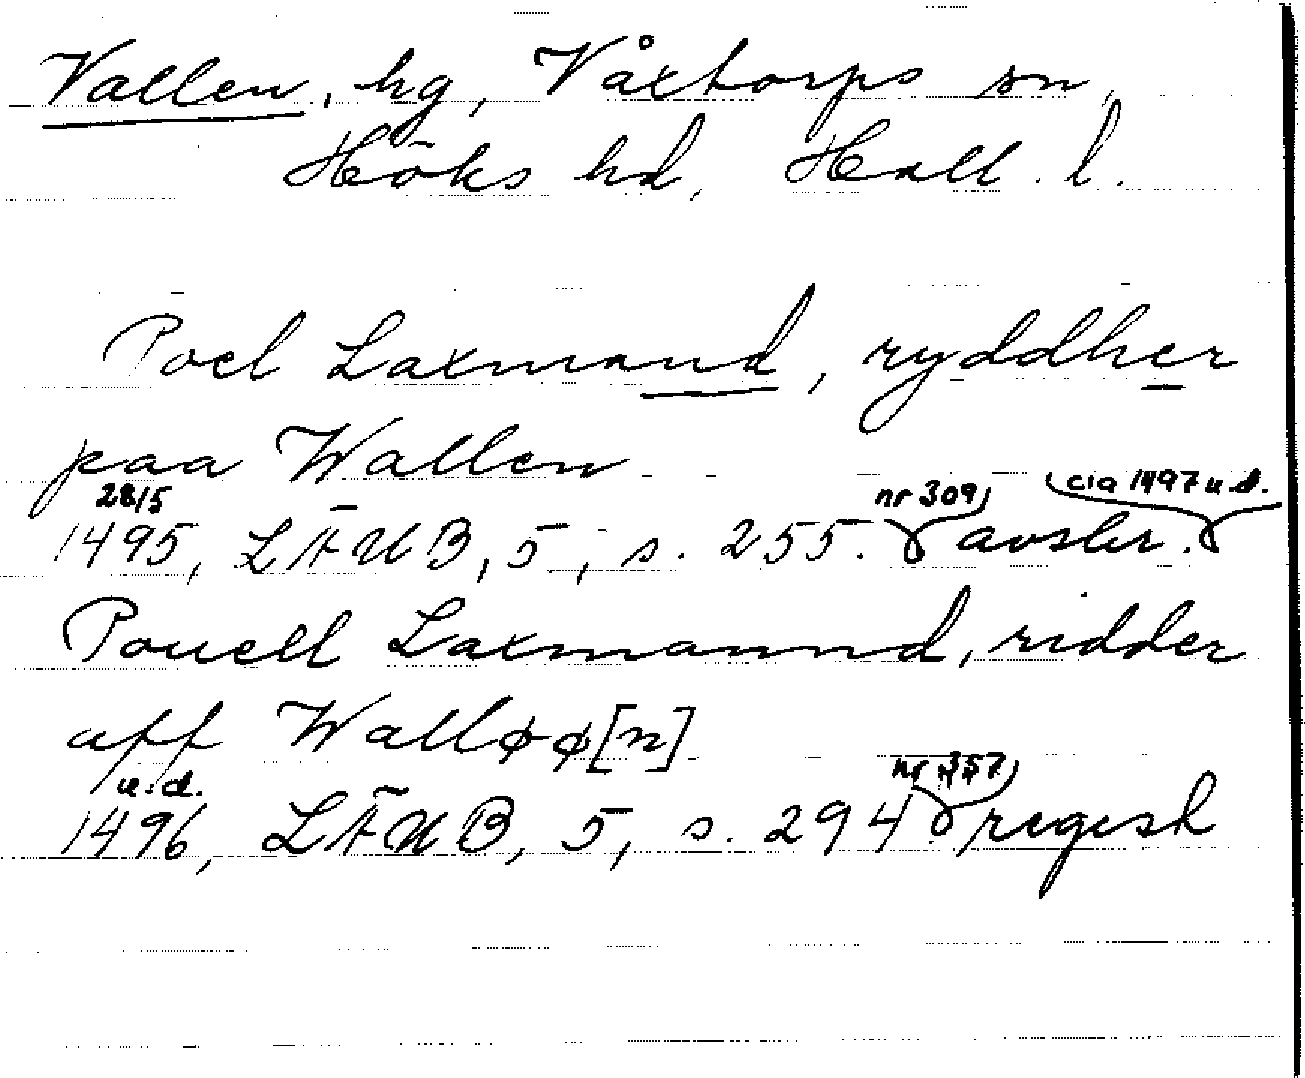 Vallen, hg, Våxtorps sn,
Höks hd, Hall. l.
Poel Laxmand, ryddher
paa Wallen
28/5 nr 309 c:a 1497 u.d.
1495, LÄUB, 5, s. 255. avskr.
Pouell Laxmannd, ridder
aff Walløø[n]
u.d. nr 357
1496, LÄUB, 5, s. 294. regest